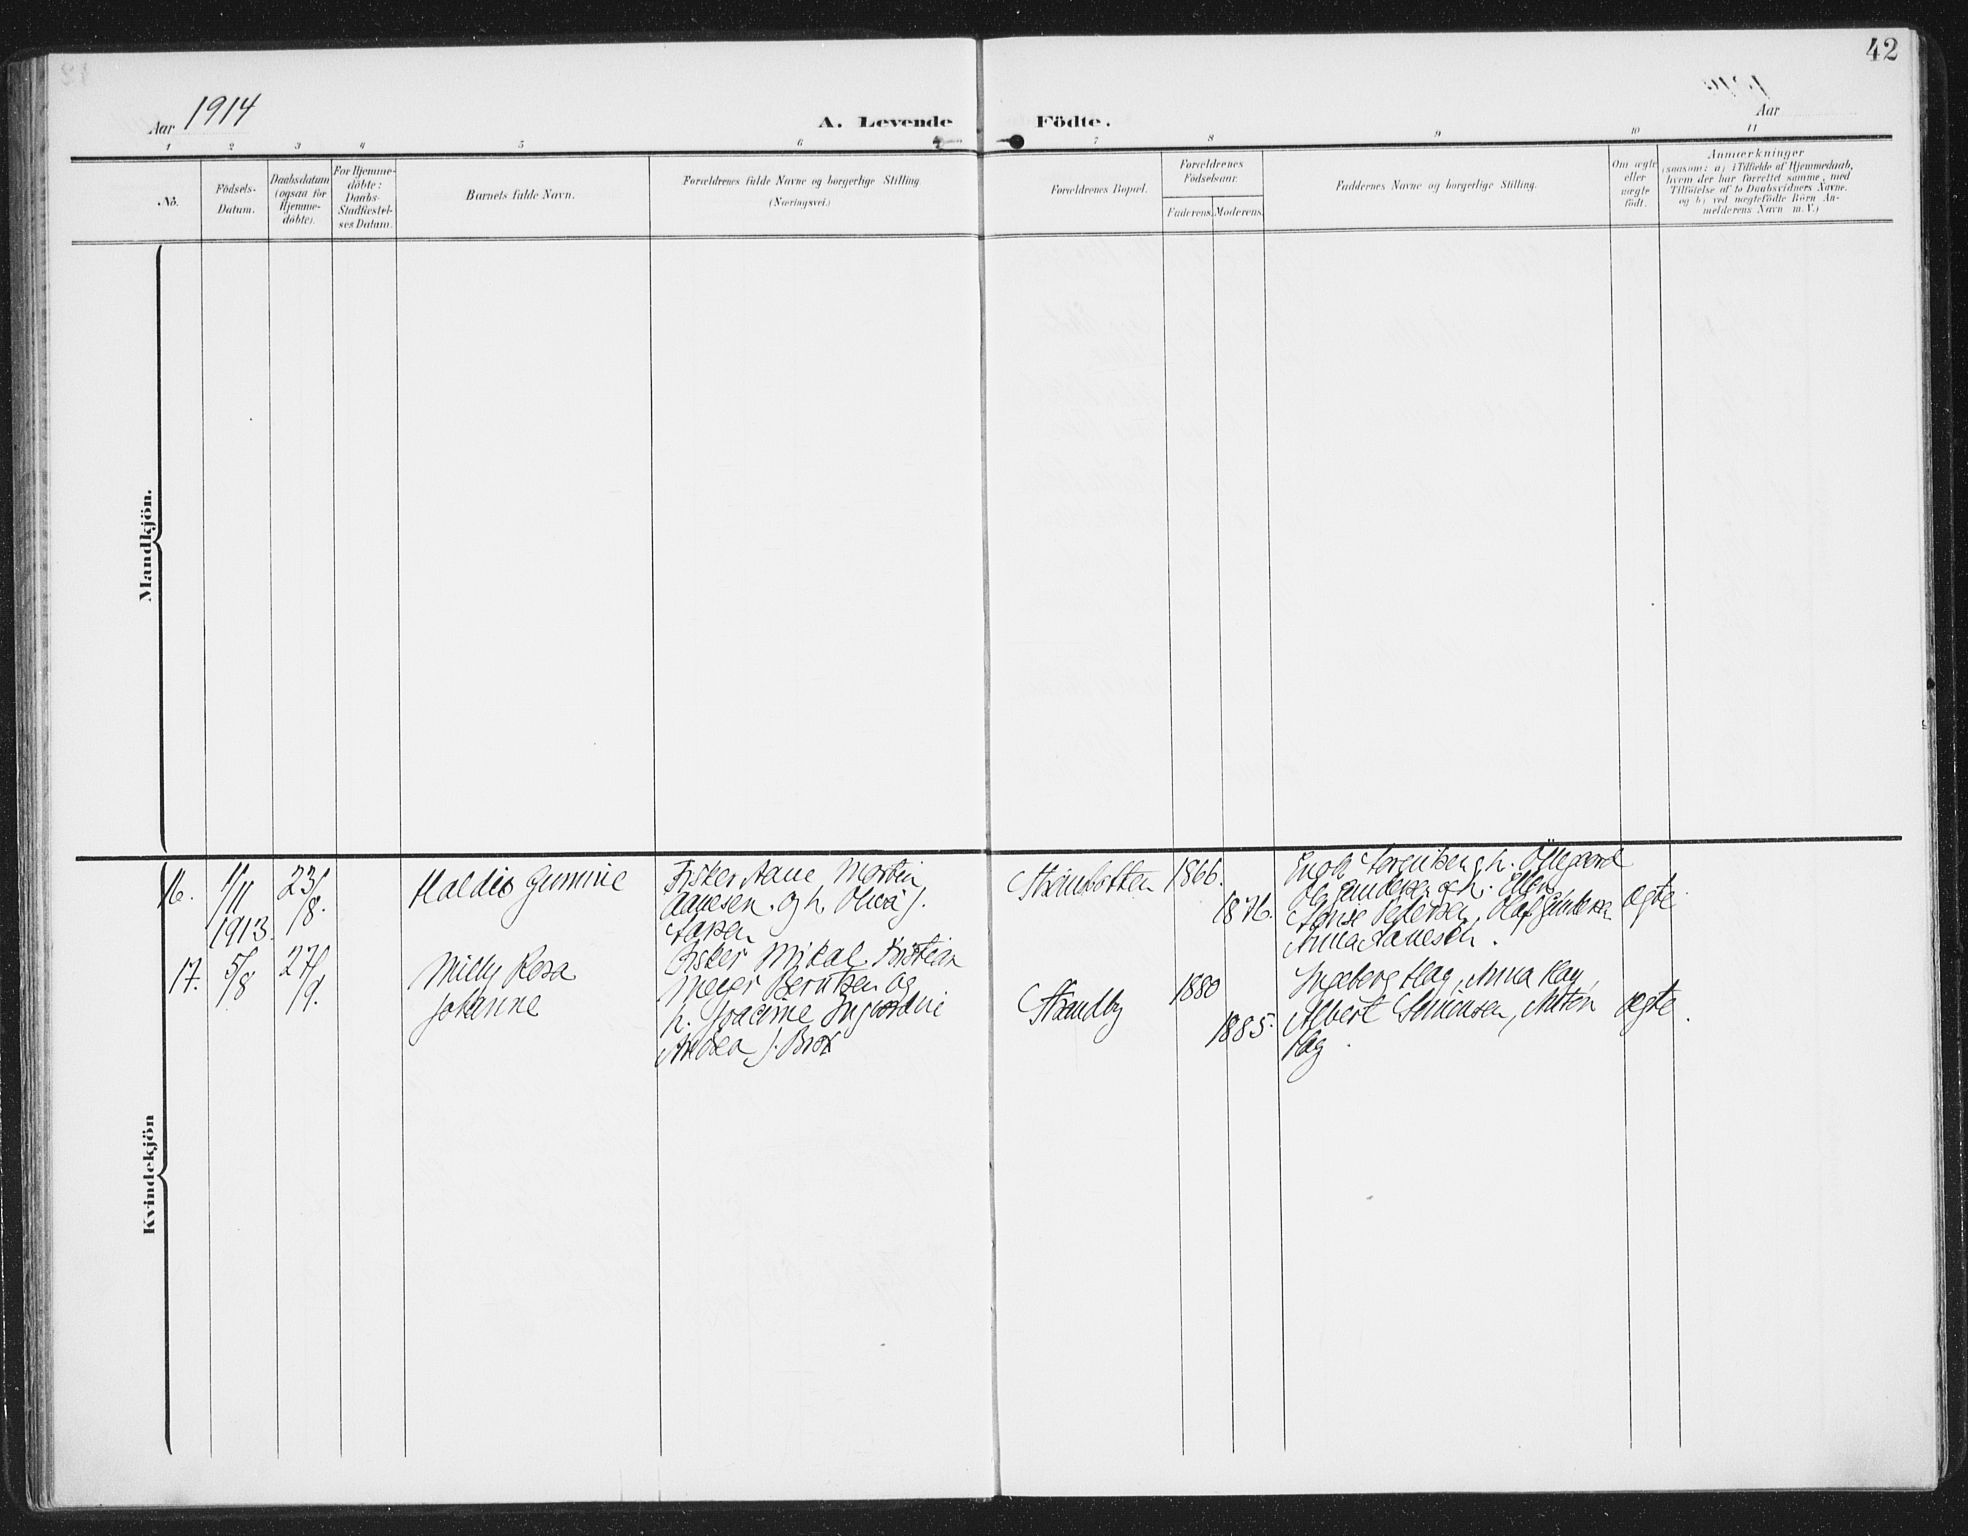 42
Aar 1914
A. Levende Födte.
Aar
1 2 3 4 5 6 7 8 9 10 11
No.
Födsels-
Datum.
Daabsdatum
(ogsaa for
Hjemme-
döbte).
For Hjemme-
döbte:
Daabs-
Stadfæstel-
ses Datum.
Barnets fulde Navn.
Forældrenes fulde Navne og borgerlige Stilling.
(Næringsvei.)
Forældrenes Bopæl.
Forældrenes
Födselsaar.
Faderens. Moderens.
Faddernes Navne og borgerlige Stilling.
Om ægte
eller
uægte
födt.
Anmærkninger
(saasom: a) i Tilfælde af Hjemmedaab,
hvem der har forrettet samme, med
Tilföielse af to Daabsvidners Navne.
og b) ved uægtefödte Börn An-
melderens Navn m. V.)
Mandkjön.
Kvindekjön
16.
1/11
1913.
23/8.
Haldis Gunnine
Fisker Aane Martin
Aanesen og h. Oliva f.
1866.
1876.
Olaf Gundersen
Anna Aanesen.
ægte
17.
5/8
27/9.
Milly Rosa
Johanne
Fisker Mikal Kristian
Meyer Berntsen og
h. Joacime Ingvardine
Andrea f. Brox
Strandby
1880
1885.
Ingeborg Hag, Anna Hag,
Albert Simonsen, Anton
Hag.
ægte.